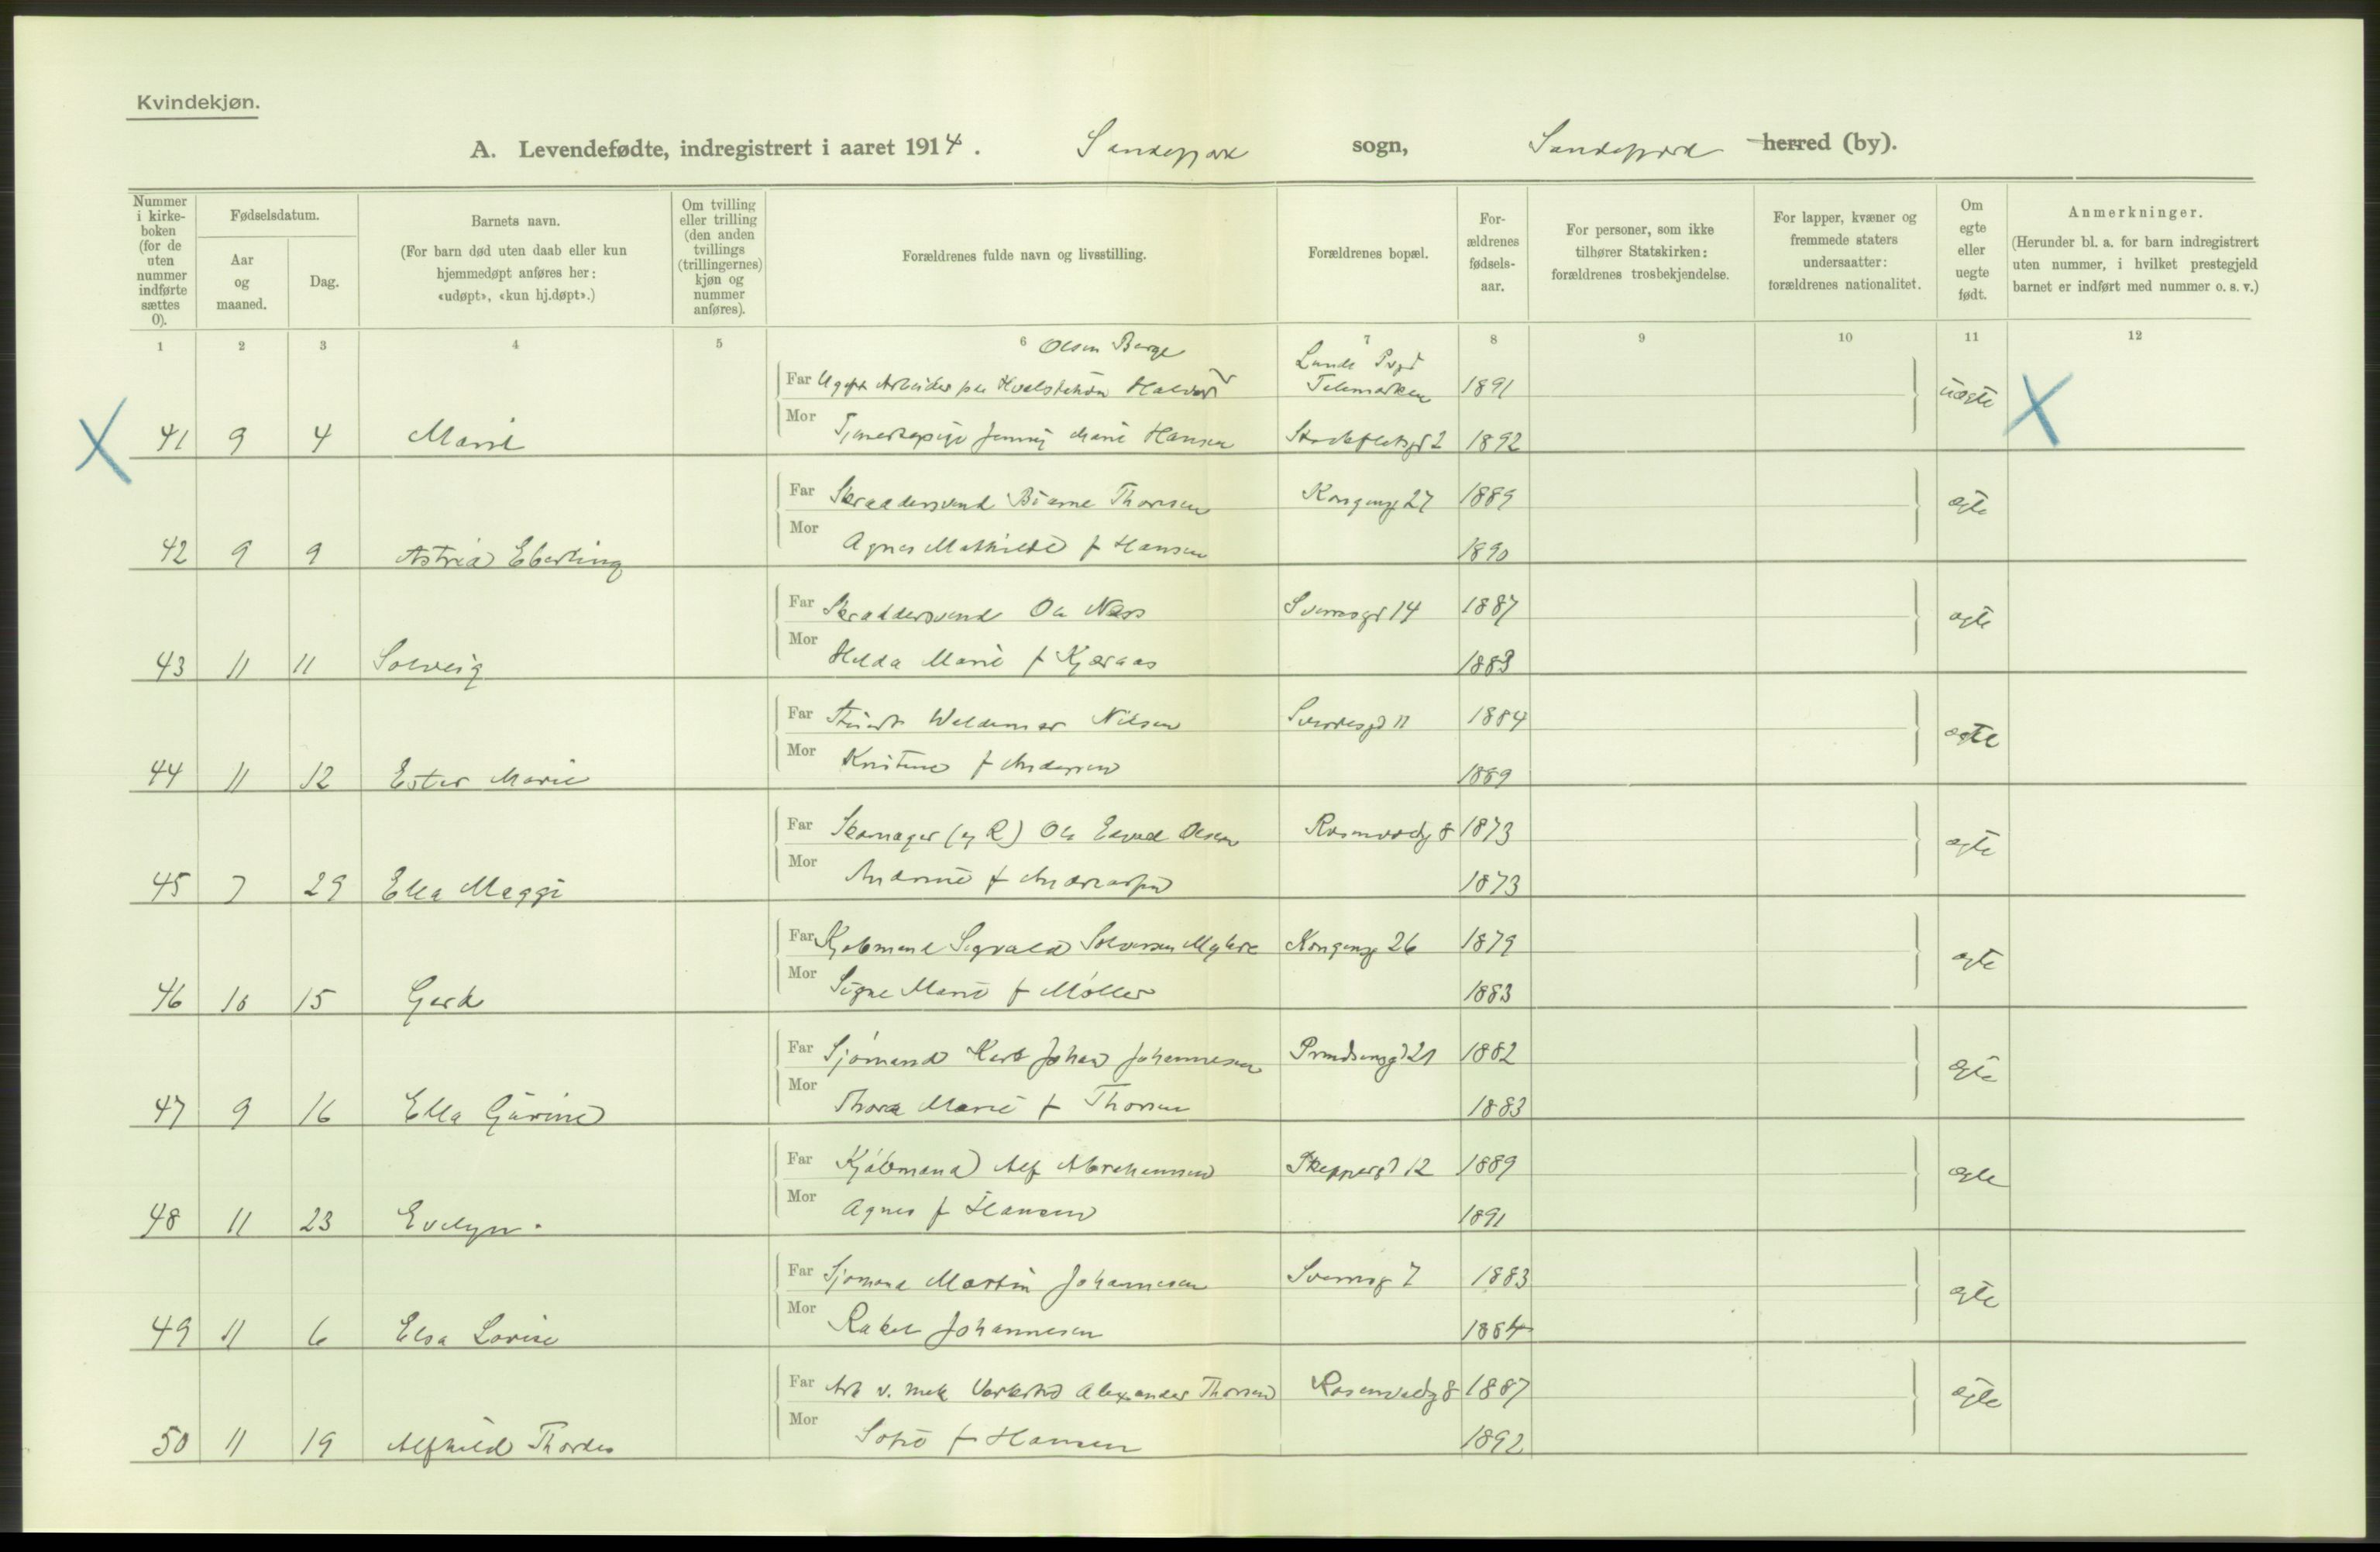 Kvindekjøn.
A. Levendefødte, indregistrert i aaret 1914. Sandefjord sogn, Sandefjord herred (by).
Nummer i kirke-boken (for de uten nummer indførte sættes 0).
Fødselsdatum.
Aar og maaned.
Dag.
Barnets navn.
(For barn død uten daab eller kun hjemmedøpt anføres her: «udøpt», «kun hj.døpt».)
Om tvilling eller trilling (den anden tvillings (trillingernes) kjøn og nummer anføres).
Forældrenes fulde navn og livsstilling.
Forældrenes bopæl.
For-ældrenes fødsels-aar.
For personer, som ikke tilhører Statskirken: forældrenes trosbekjendelse.
For lapper, kvæner og fremmede staters undersaatter: forældrenes nationalitet.
Om egte eller uegte født.
Anmerkninger.
(Herunder bl. a. for barn indregistrert uten nummer, i hvilket prestegjeld barnet er indført med nummer o. s. v.)
1 2 3 4 5 6 7 8 9 10 11 12
Olsen Berge Lunde Pgjd
Far Ugift Arbeider paa Hvalstation Halvor Telemarken 1891 uægte
X 41 9 4 Marie Mor Tjenestepige Jenny Marie Hansen 2 1892 X
Far Skraddersvend Bjarne Thorsen Kongensg 27 1889 ægte
42 9 9 Astrid Eberling Mor Agnes Mathilde f Hansen 1890
Far Skraddersvend Ole Næss Sverresgd 14 1887 ægte
43 11 11 Solveig Mor Helda Marie f Kjæraas 1883
Far Waldemar Nilsen Sverresgd 11 1884 ægte
44 11 12 Ester Marie Mor Kristine f Andersen 1889
Far Skomager (eg R) Ole Edvard Olsen Rosenvoldg 8 1873 ægte
45 7 29 Ella Maggi Mor f 1873
Far Kjøbmand Sigvald Solversen Myhre Kongensg 26 1879 ægte
46 10 15 Gerd Mor Signe Marie f Møller 1883
Far Sjømand Karl Johan Johannesen Prindsensgd 21 1882 ægte
47 9 16 Ella Gurine Mor Thora Marie f Thorsen 1883
Far Kjøbmand Alf Abrahamsen Skippergd 12 1889 ægte
48 11 23 Evelyn. Mor Agnes f Hansen 1891
Far Sjømand Martin Johannesen Sverresg 7 1883 ægte
49 11 6 Elsa Lovise Mor Rakel Johannesen 1884
Far Arb v. mek Verksted Alexander Thorsen Rosenvoldg 8 1887 ægte
50 11 19 Alfhild Thordis Mor Sofie f Hansen 1892